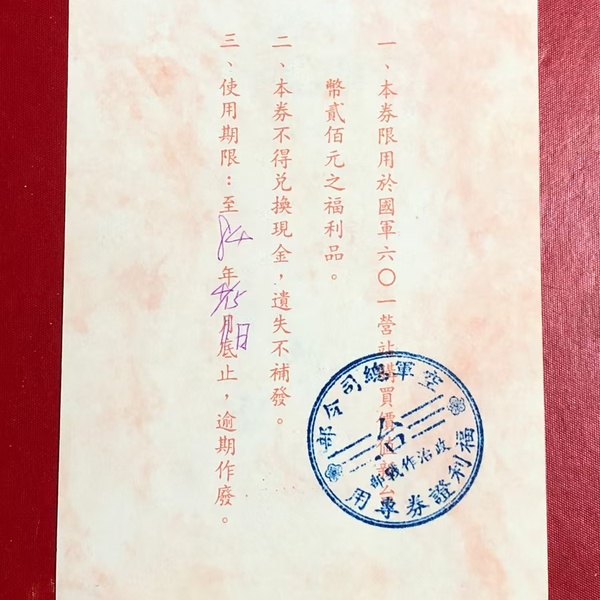 一、本券限用於國軍六〇一營站購買價值新台
幣貳佰元之福利品。
二、本券不得兌換現金，遺失不補發。
三、使用期限：至84年月底止，逾期作廢。
空軍總司令部
政治作戰部
福利證券專用